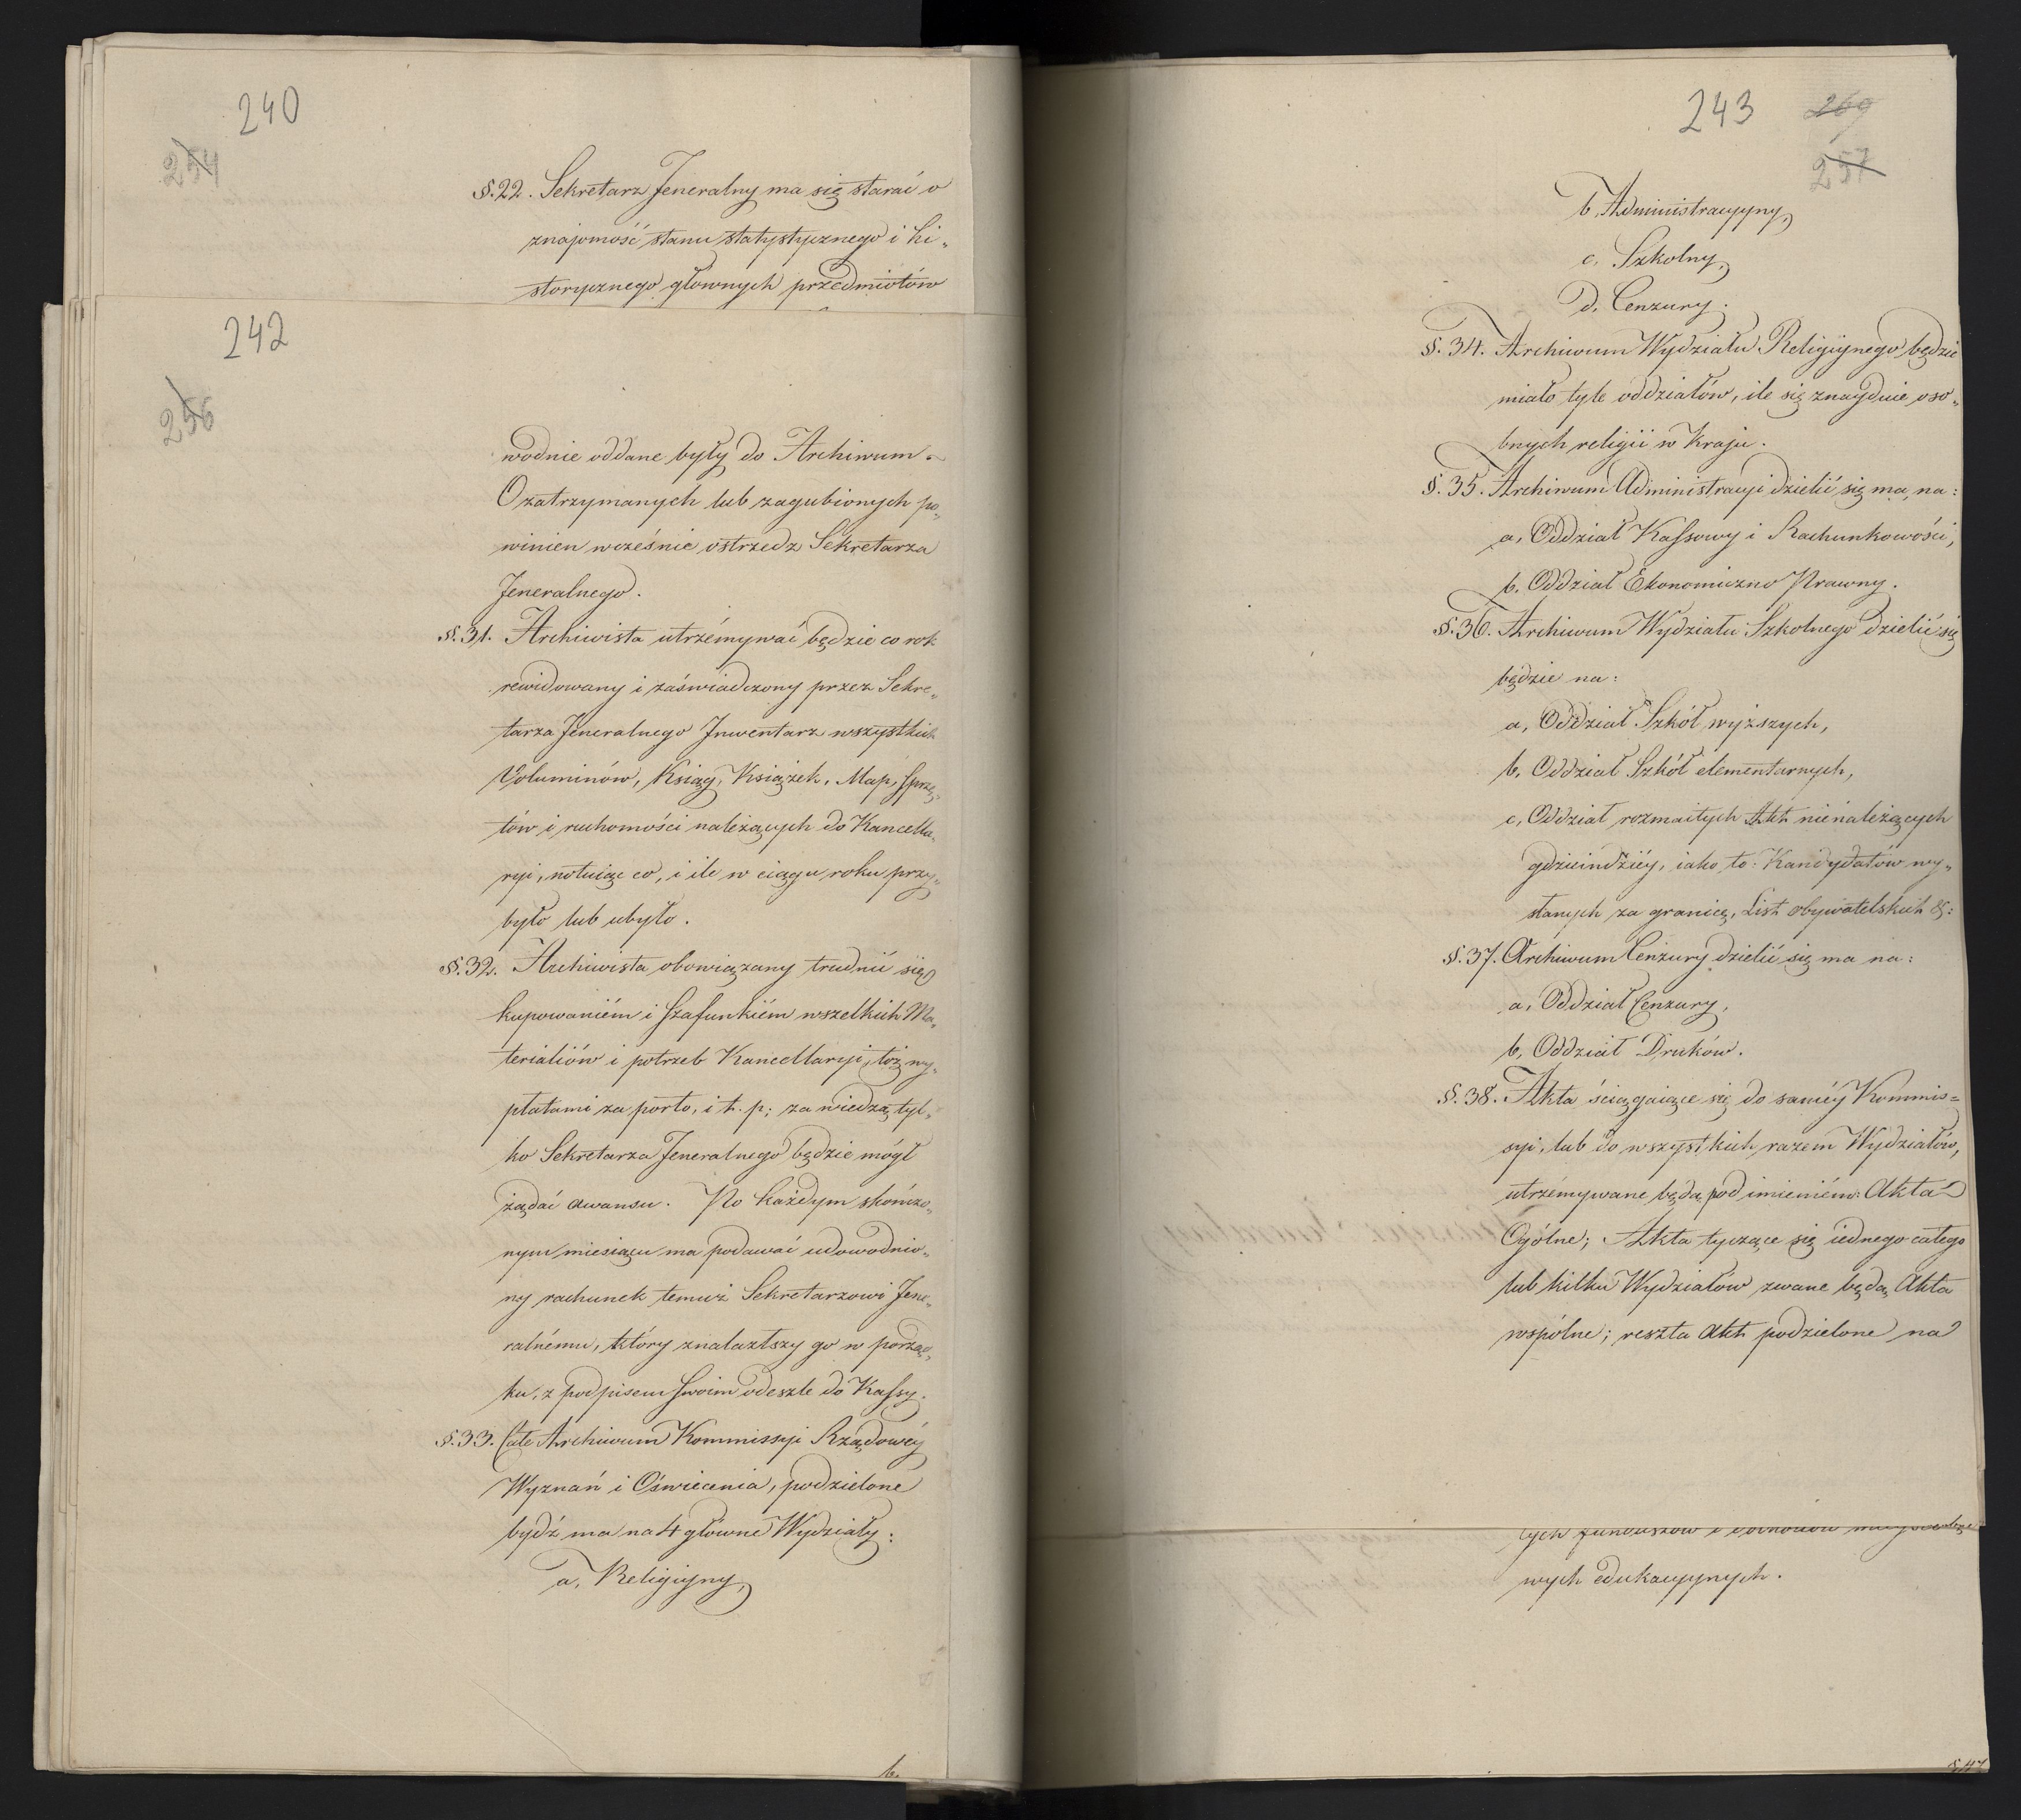 240
254
§.22. Sekretarz Jeneralny ma się starać o
znajomość stanu statystycznego i hi„
storycznego głównych przedmiotów
242
256
wodnie oddane były do Archiwum.
O zatrzymanych lub zagubionych po„
winien wcześnie ostrzedz Sekretarza
Jeneralnego.
§.31. Archiwista utrzémywać będzie co rok
rewidowany i zaświadczony przez Sekre„
tarza Jeneralnego Inwentarz wszystkich
Voluminów, Ksiąg, Książek, Map, sprzę„
tów i ruchomości należących do Kancella„
ryi, notuiąc co, i ile w ciągu roku przy„
było lub ubyło.
§.32. Archiwista obowiązany trudnić się
kupowaniém i szafunkiém wszelkich Ma„
terialiów i potrzeb Kancellaryi, téż wy„
płatami za porto, i t. p; za wiedzą tyl„
ko Sekretarza Jeneralnego będzie mógł
żądać awansu. Po każdym skończo„
nym miesiącu ma podawać udowodnio„
ny rachunek temuż Sekretarzowi Jene„
ralnému, który znalazłszy go w porząd„
ku, z podpisem swoim odeszle do Kassy.
§.33. Całe Archiwum Kommissyi Rządowéy
Wyznań i Oświecenia, podzieloné
bydź ma na 4 główne Wydziały:
a, Religiyny,
b.
243 269
257
b, Administracyyny,
c, Szkolny,
d, Cenzury.
§.34. Archiwum Wydziału Religiynego będzie
miało tyle oddziałów, ile się znayduie oso„
bnych religii w Kraju.
§.35. Archiwum Administracyi dzielić się ma, na:
a, Oddział Kassowy i Rachunkowości,
b, Oddział Ekonomiczno Prawny.
§.36. Archiwum Wydziału Szkolnego dzielić się
będzie na:
a, Oddział Szkół wyższych,
b, Oddział Szkół élementarnych,
c, Oddział rozmaitych Akt nienależących
gdzieindziéy, iako to: Kandydatów wy„
słanych za granicę, List obywatelskich &:
§.37. Archiwum Cenzury dzielić się ma na:
a, Oddział Cenzury,
b, Oddział Druków.
§.38. Akta ściągaiące się do saméy Kommis=
syi, lub do wszystkich razem Wydziałów,
utrzémywane będą pod imieniém: Akta
Ogólne; Akta tyczące się iednego całego
lub kilku Wydziałów zwane będą Akta
wspólne; reszta Akt podzielone na
tych funduszów i dochodów
wych edukacyynych.